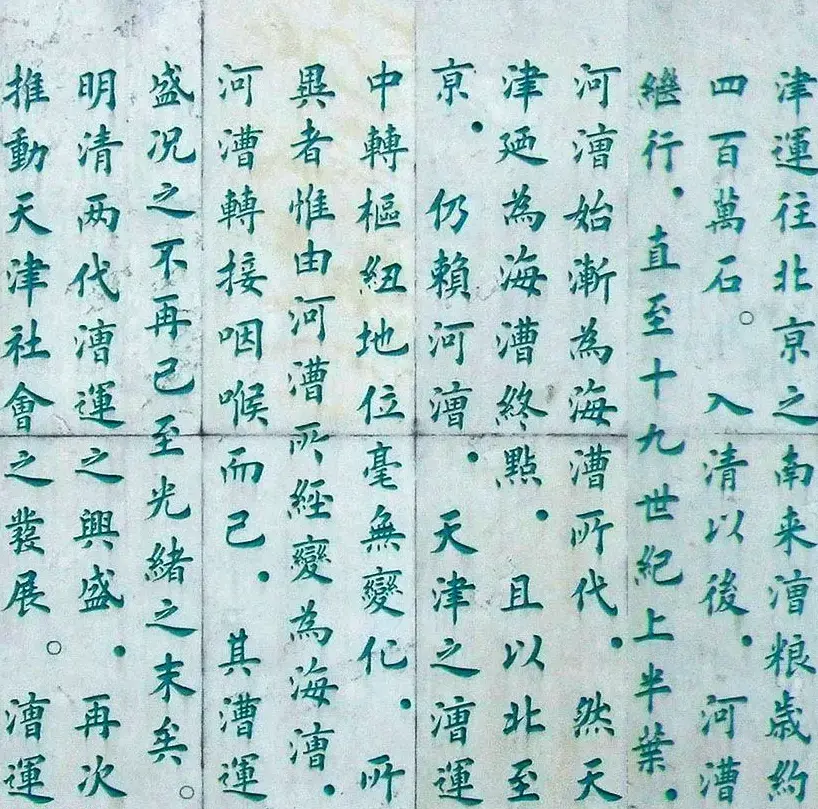 津運往北亰之南来漕粮歳約
四百萬石。入清以後．河漕
継行．直至十九世紀上半葉．
河漕始漸為海漕所代．然天
津廼為海漕終點．且以北至
亰．仍賴河漕．天津之漕運
中轉樞紐地位毫無變化．所
異者惟由河漕所經變為海漕．
河漕轉接咽喉而已．其漕運
盛况之不再已至光緒之末矣。
明清两代漕運之興盛．再次
推動天津社會之發展。漕運